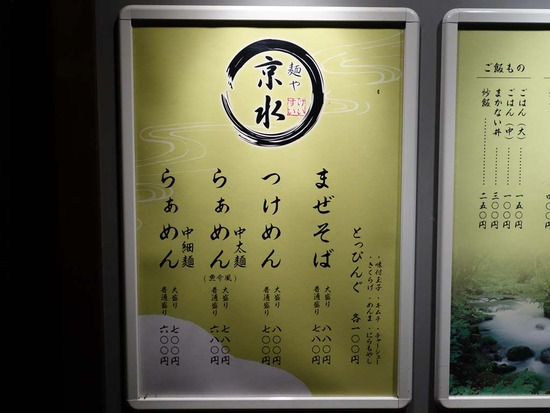 麺や
京水
まぜそば
大盛り 八八〇円
普通盛り 七八〇円
つけめん
大盛り 八八〇円
普通盛り 七八〇円
らぁめん
中太麺
大盛り 七八〇円
普通盛り 六八〇円
らぁめん
中細麺
大盛り 七〇〇円
普通盛り 六〇〇円
とっぴんぐ
・味付玉子 ・キムチ ・チャーシュー
・きくらげ ・めんま ・にらもやし
各一〇〇円
ご飯もの
ごはん（大） 一五〇円
ごはん（中） 一〇〇円
まかない丼 三〇〇円
炒飯 二五〇円